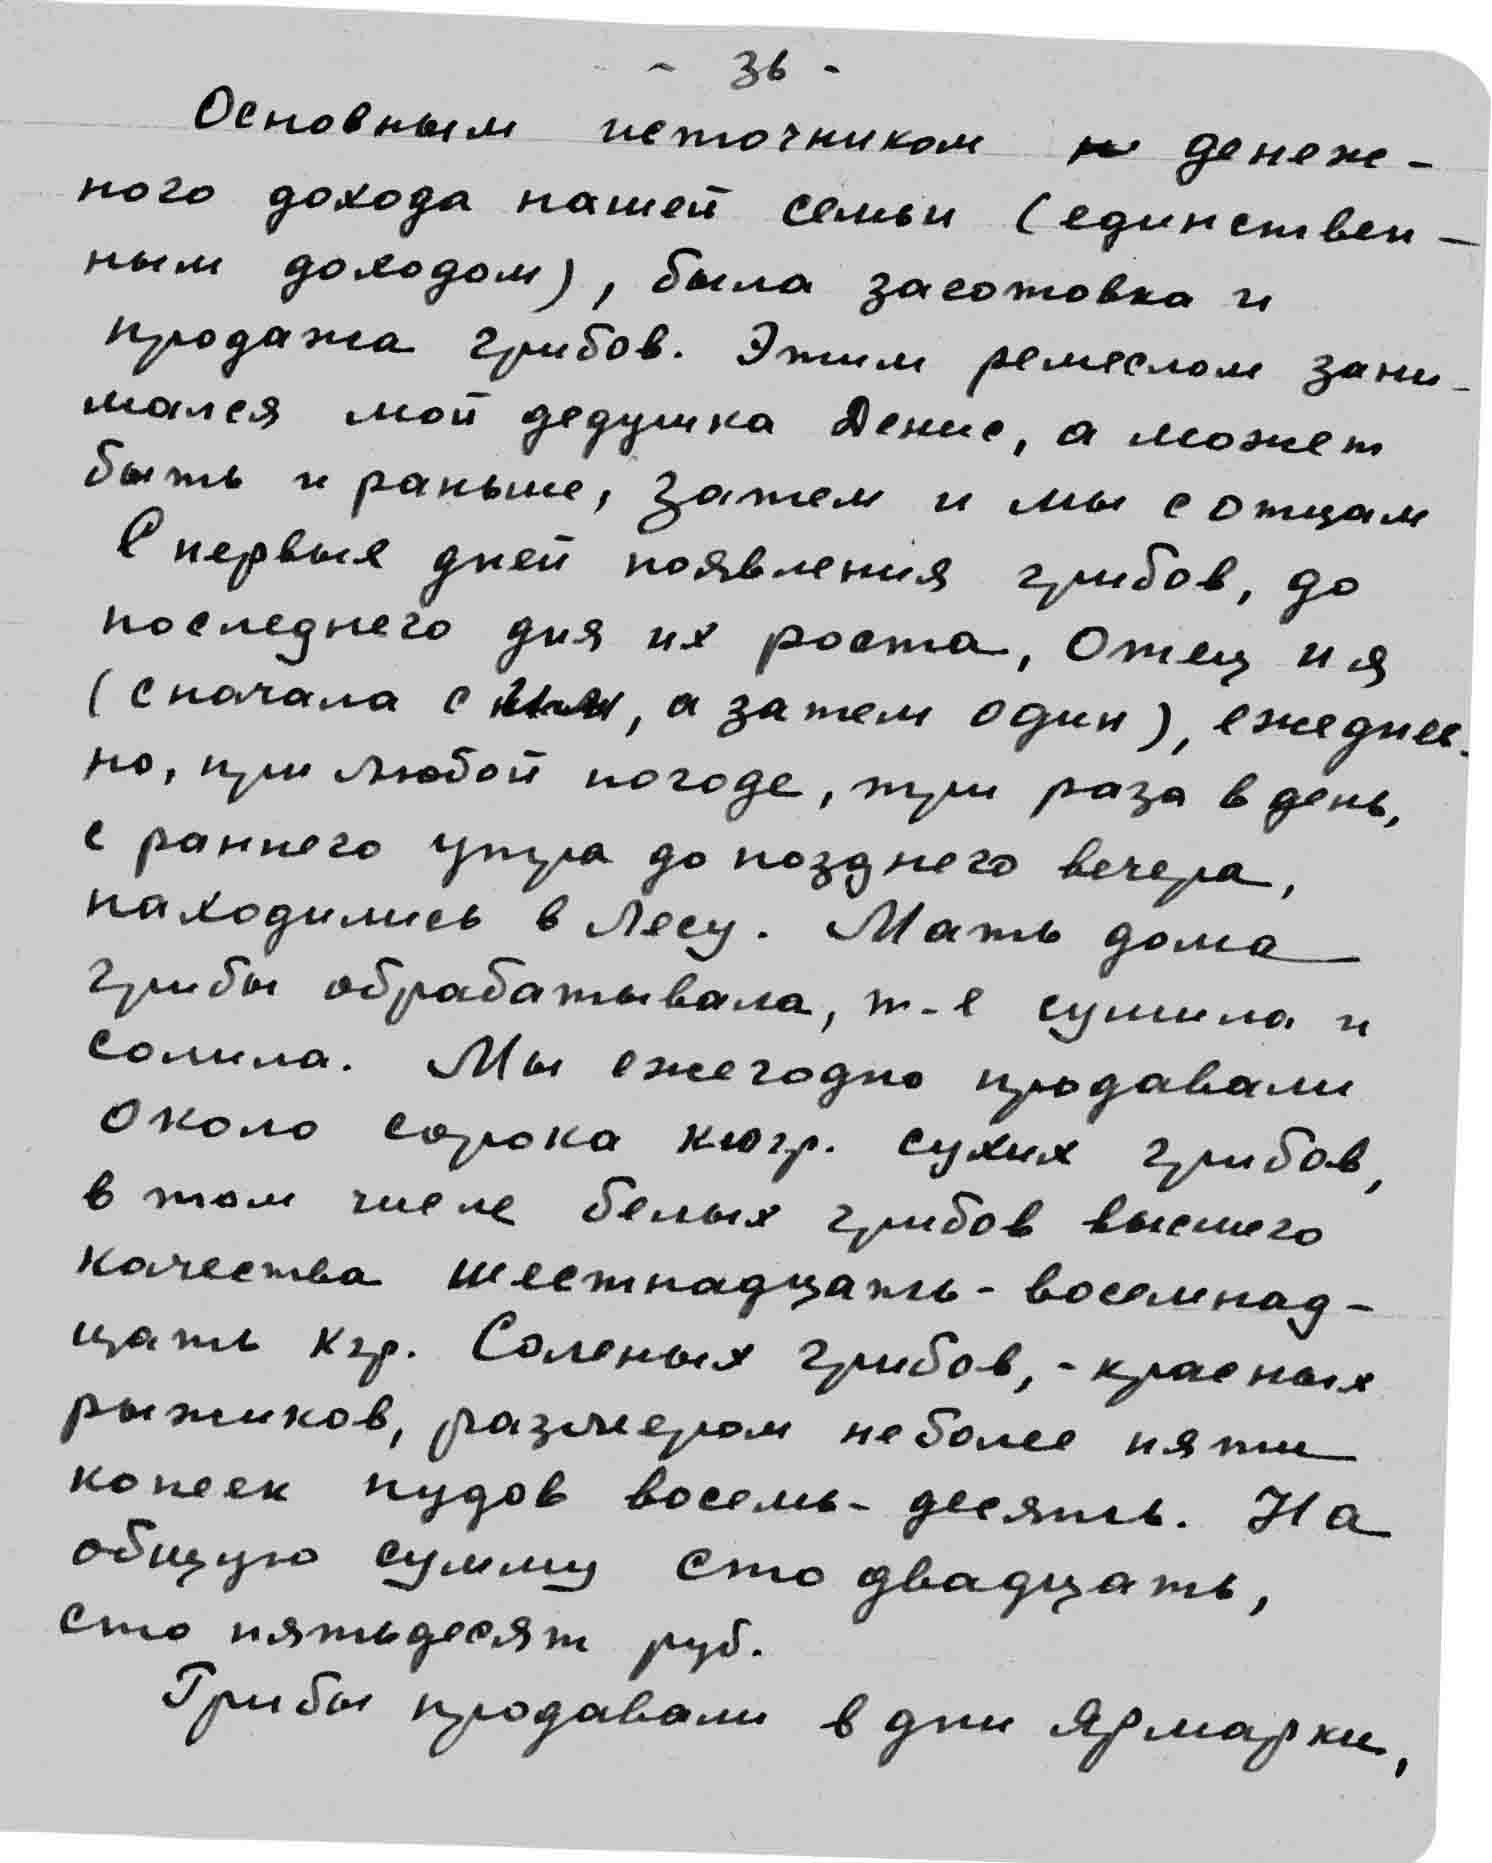 - 36 -
Основным источником денеж-
ного дохода нашей семьи (единствен-
ным доходом), была заготовка и
продажа грибов. Этим ремеслом зани-
мался мой дедушка Денис, а может
быть и раньше, затем и мы с отцам
С первые дней появления грибов, до
последнего дня их роста, Отец и я
(сначала с ним, а затем один), ежеднев-
но, при любой погоде, три раза в день,
с раннего утра до позднего вечера,
находились в лесу. Мать дома
грибы обрабатывала, т-е сушила и
солила. Мы ежегодно продавали
около сорока клгр. сухих грибов,
в том числе белых грибов высшего
качества шестнадцать-восемнад-
цать кгр. Соленых грибов,-красных
рыжиков, размером неболее пяти
копеек пудов восемь-десять. На
общую сумму сто двадцать,
сто пятьдесят руб.
Грибы продавали в дни Ярмарки,